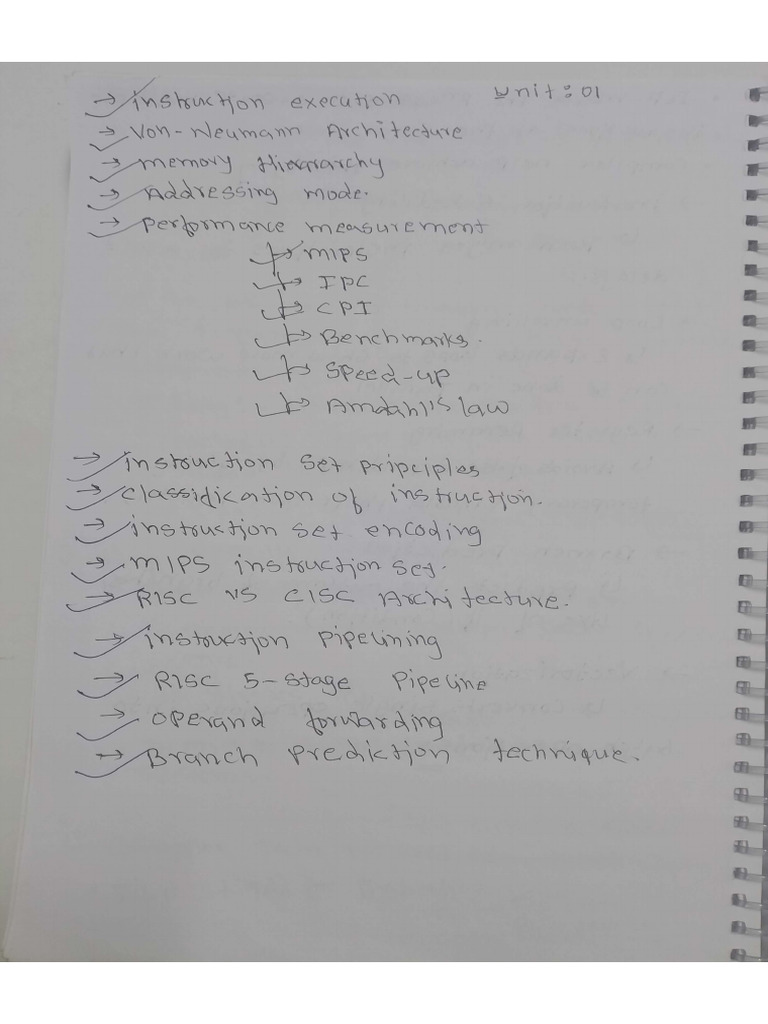 → instruction execution Unit: 01
→ Von-Neumann Architecture
→ memory Hierarchy
→ Addressing mode.
→ performance measurement
→ MIPS
→ IPC
→ CPI
→ Benchmarks.
→ Speed-up
→ Amdahl's law
→ instruction set priciples
→ classidication of instruction.
→ instruction set encoding
→ MIPS instruction set.
→ RISC VS CISC Architecture.
→ instruction pipelining
→ RISC 5-stage pipeline
→ operand forwarding
→ Branch prediction technique.